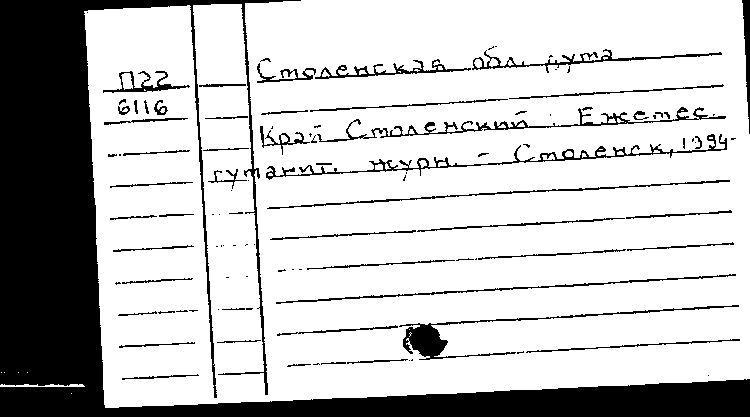 П22
6116
Смоленская обл. дума
Край Смоленский : Ежемес.
гуманит. журн. - Смоленск, 1994-